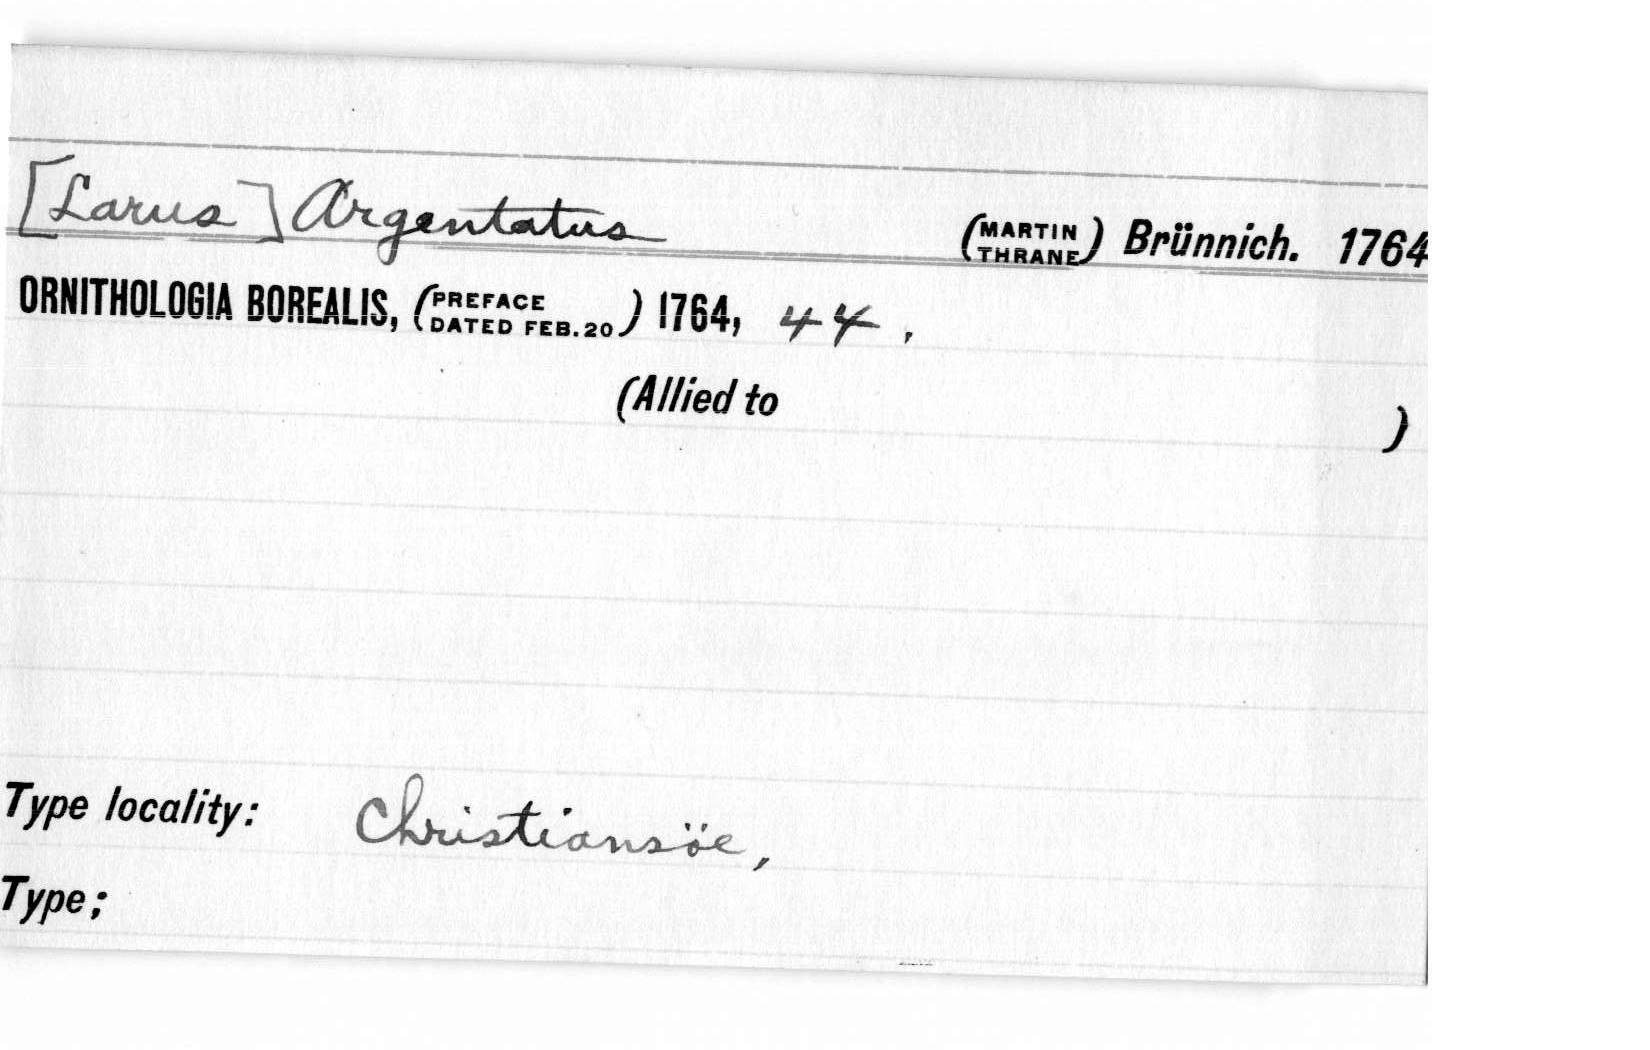 [Larus] Argentatus (MARTIN THRANE) Brünnich. 1764
ORNITHOLOGIA BOREALIS, (PREFACE DATED FEB. 20) 1764, 44,
(Allied to )
Type locality: Christiansöe,
Type;